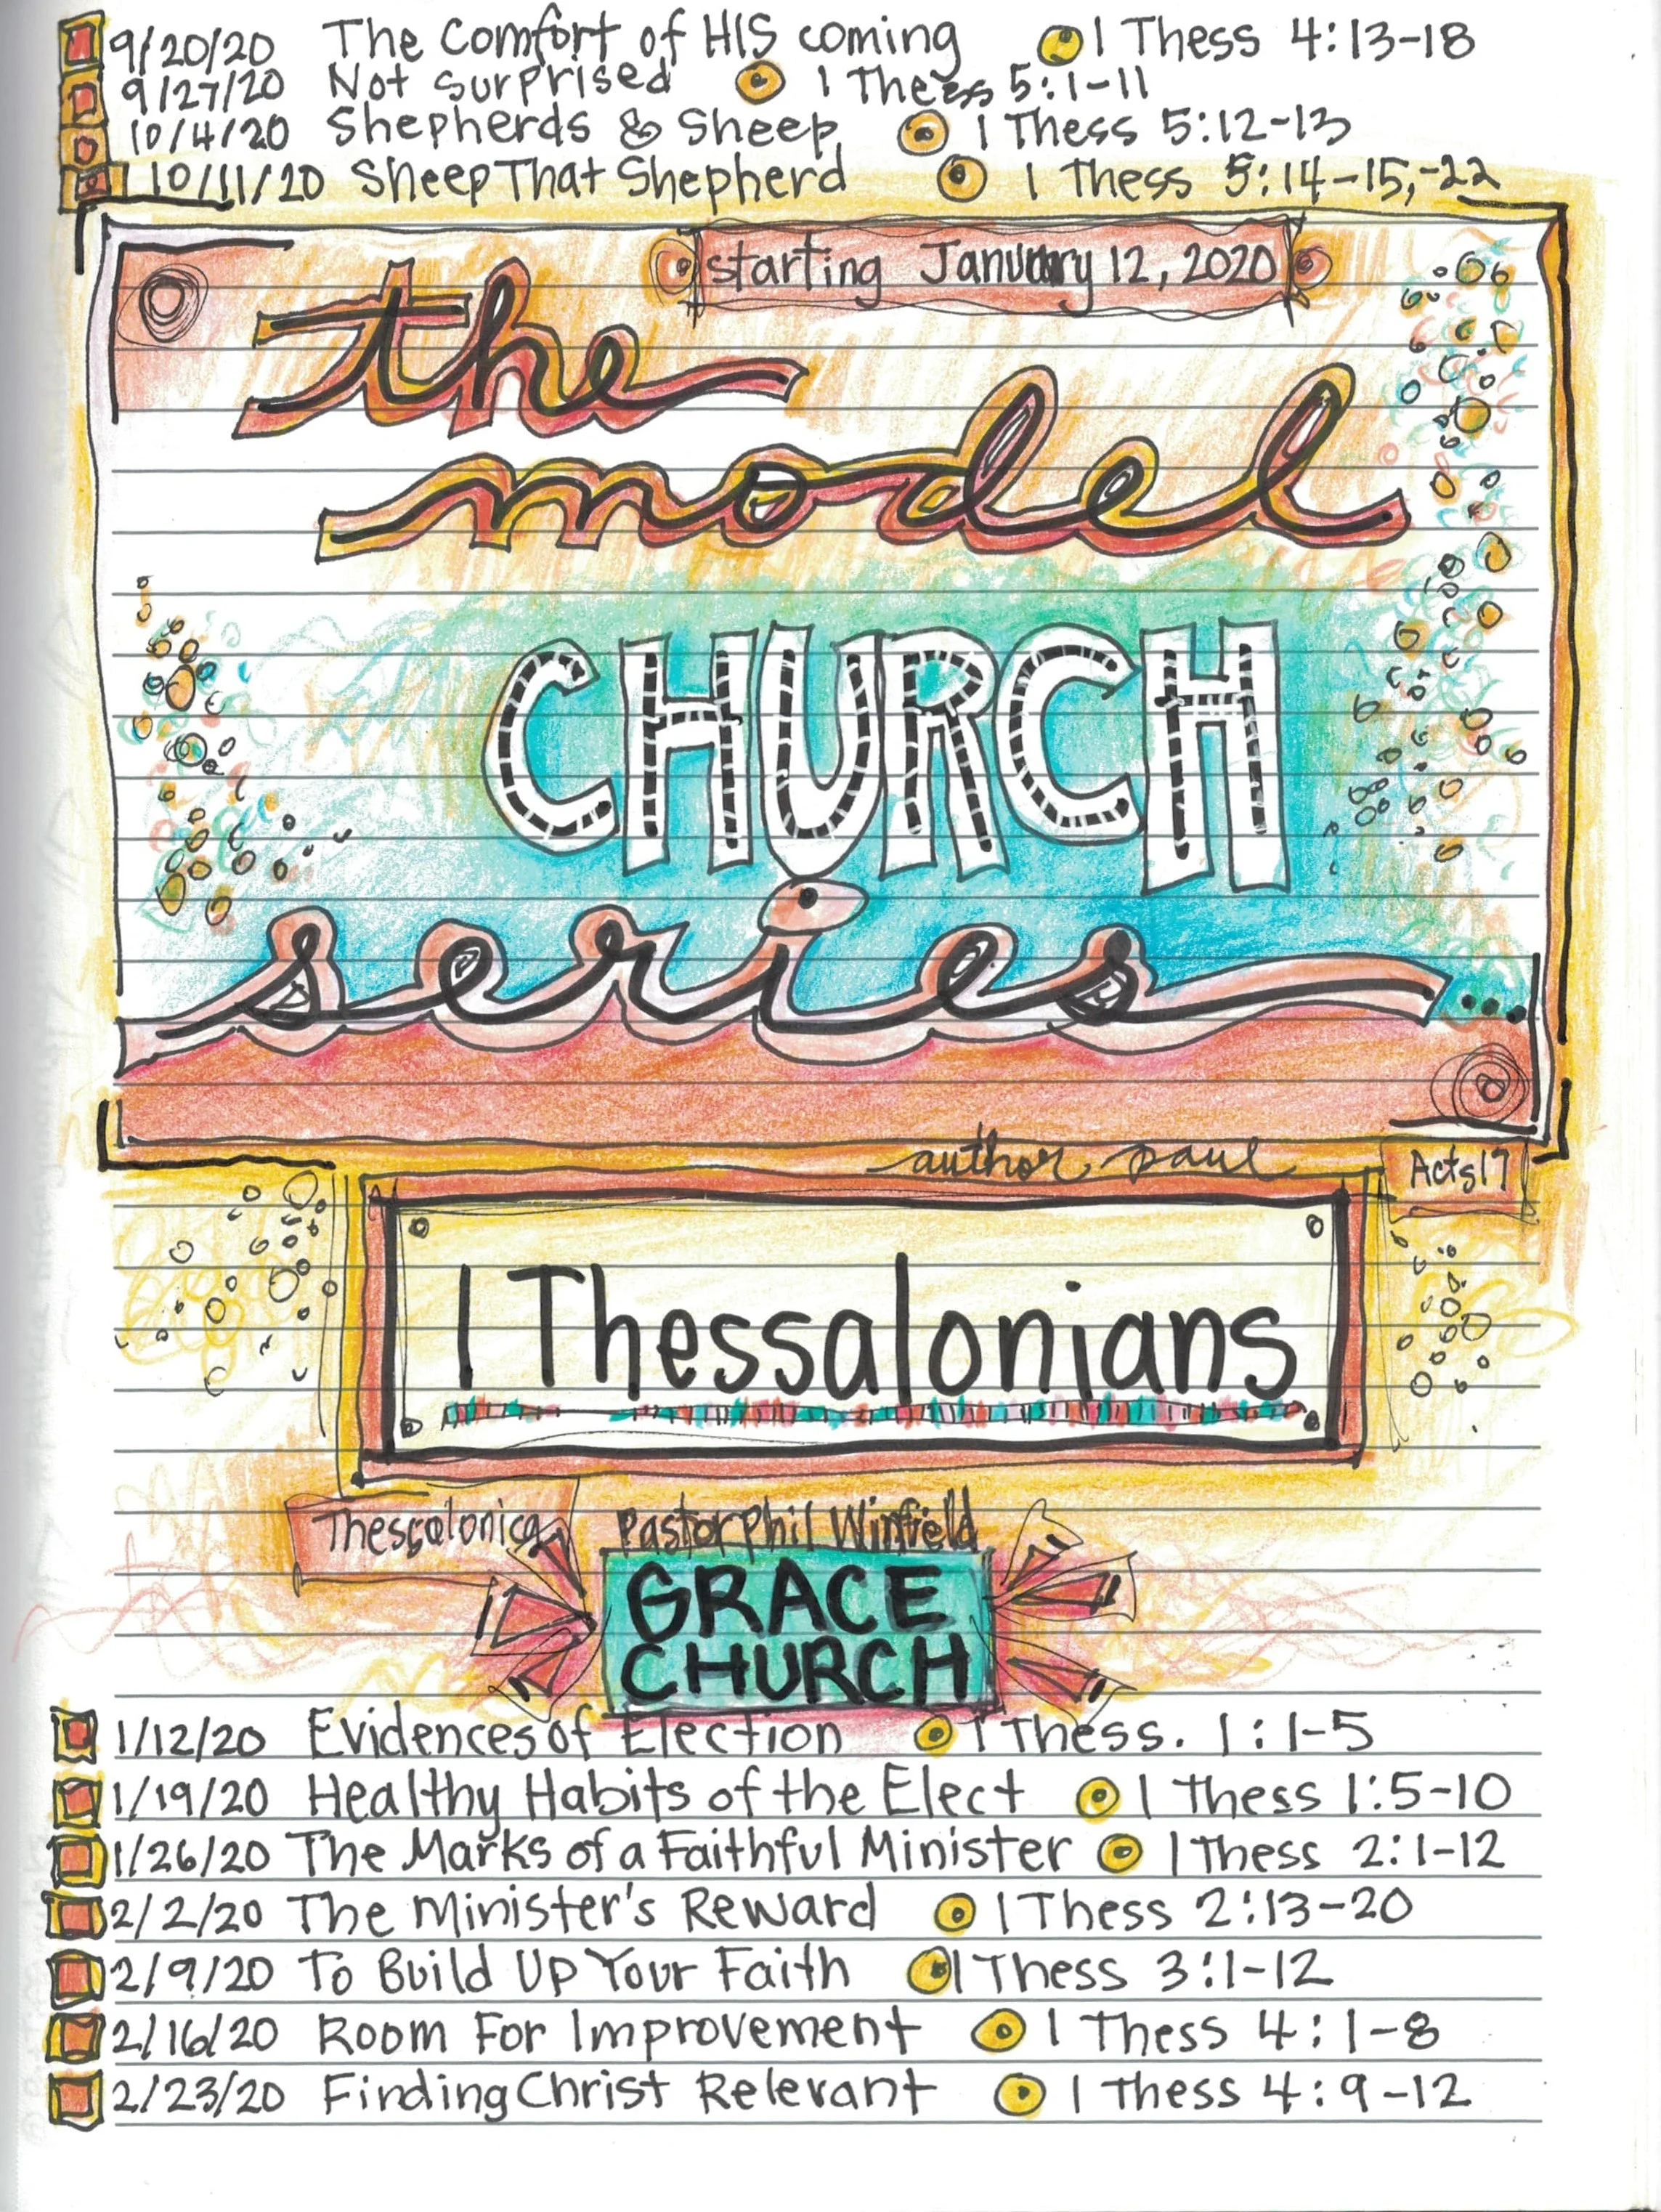 9/20/20 The Comfort of HIS coming 1 Thess 4:13-18
9/27/20 Not Surprised 1 Thess 5:1-11
10/4/20 Shepherds & Sheep 1 Thess 5:12-13
10/11/20 Sheep That Shepherd 1 Thess 5:14-15,-22
starting January 12, 2020
the
model
CHURCH
series...
author paul
Acts 17
1 Thessalonians
Thessalonica
Pastor Phil Winfield
GRACE
CHURCH
1/12/20 Evidences of Election 1 Thess. 1:1-5
1/19/20 Healthy Habits of the Elect 1 Thess 1:5-10
1/26/20 The Marks of a Faithful Minister 1 Thess 2:1-12
2/2/20 The Minister's Reward 1 Thess 2:13-20
2/9/20 To Build Up Your Faith 1 Thess 3:1-12
2/16/20 Room For Improvement 1 Thess 4:1-8
2/23/20 Finding Christ Relevant 1 Thess 4:9-12